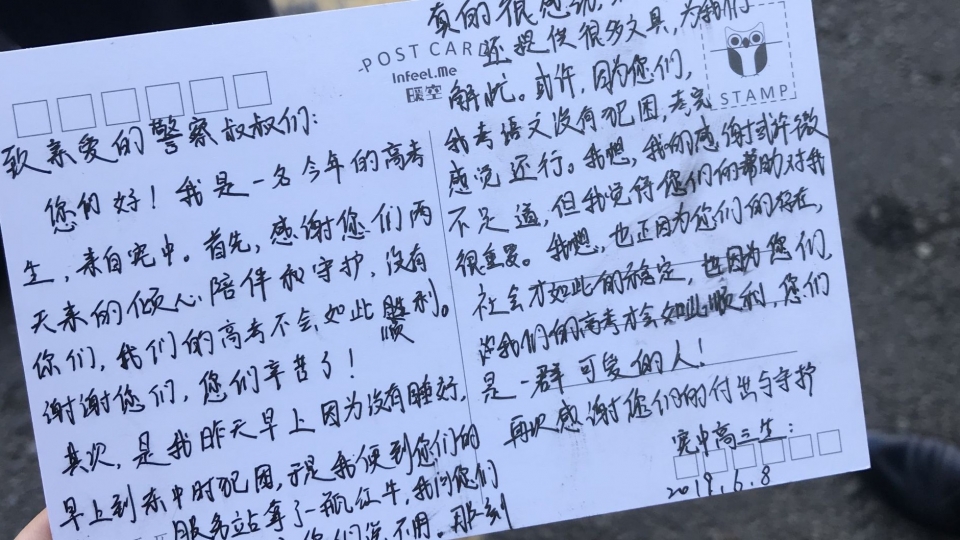 POST CARD
Infeel.Me
STAMP
致亲爱的警察叔叔们：
您们好！我是一名今年的高考
生，来自宪中。首先，感谢您们两
天来的倾心陪伴和守护，没有
你们，我们的高考不会如此顺利。
谢谢您们，您们辛苦了！
其次，是我昨天早上因为没有睡好，
早上到来中时犯困，于是我便到您们的
服务站拿了一瓶红牛，我问您们
您们说不用。那刻
真的很感动，
还提供很多文具，为我们
解忧。或许，因为您们，
我考语文没有犯困，考完
感觉还行。我想，我的感谢或许微
不足道，但我觉得您们的帮助对我
很重要。我想，也正因为您们的存在，
社会才如此的稳定，也因为您们，
我们的高考才会如此顺利，您们
是一群可爱的人！
再次感谢您们的付出与守护
宪中高三生：
2019.6.8